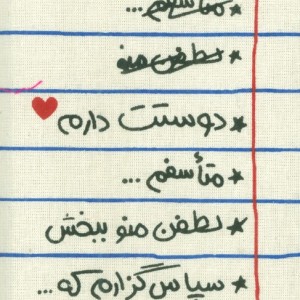 ★ متأسفم...
★ لطفن منو
★ دوستت دارم
★ متأسفم ...
★ لطفن منو ببخش
★ سپاس‌گزارم که ...